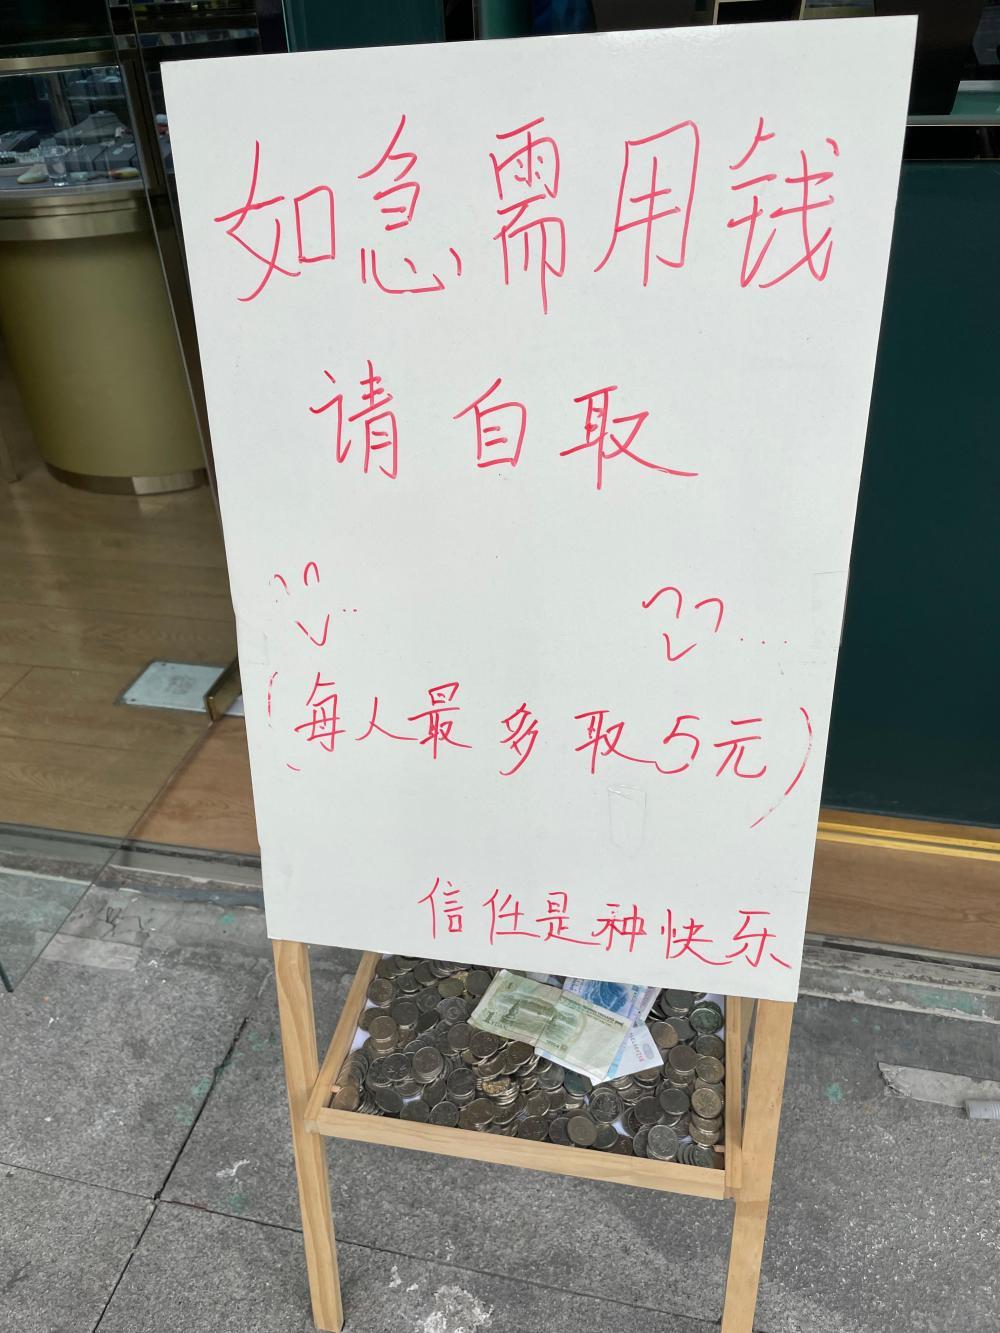 如急需用钱
请自取
(每人最多取5元)
信任是种快乐
1